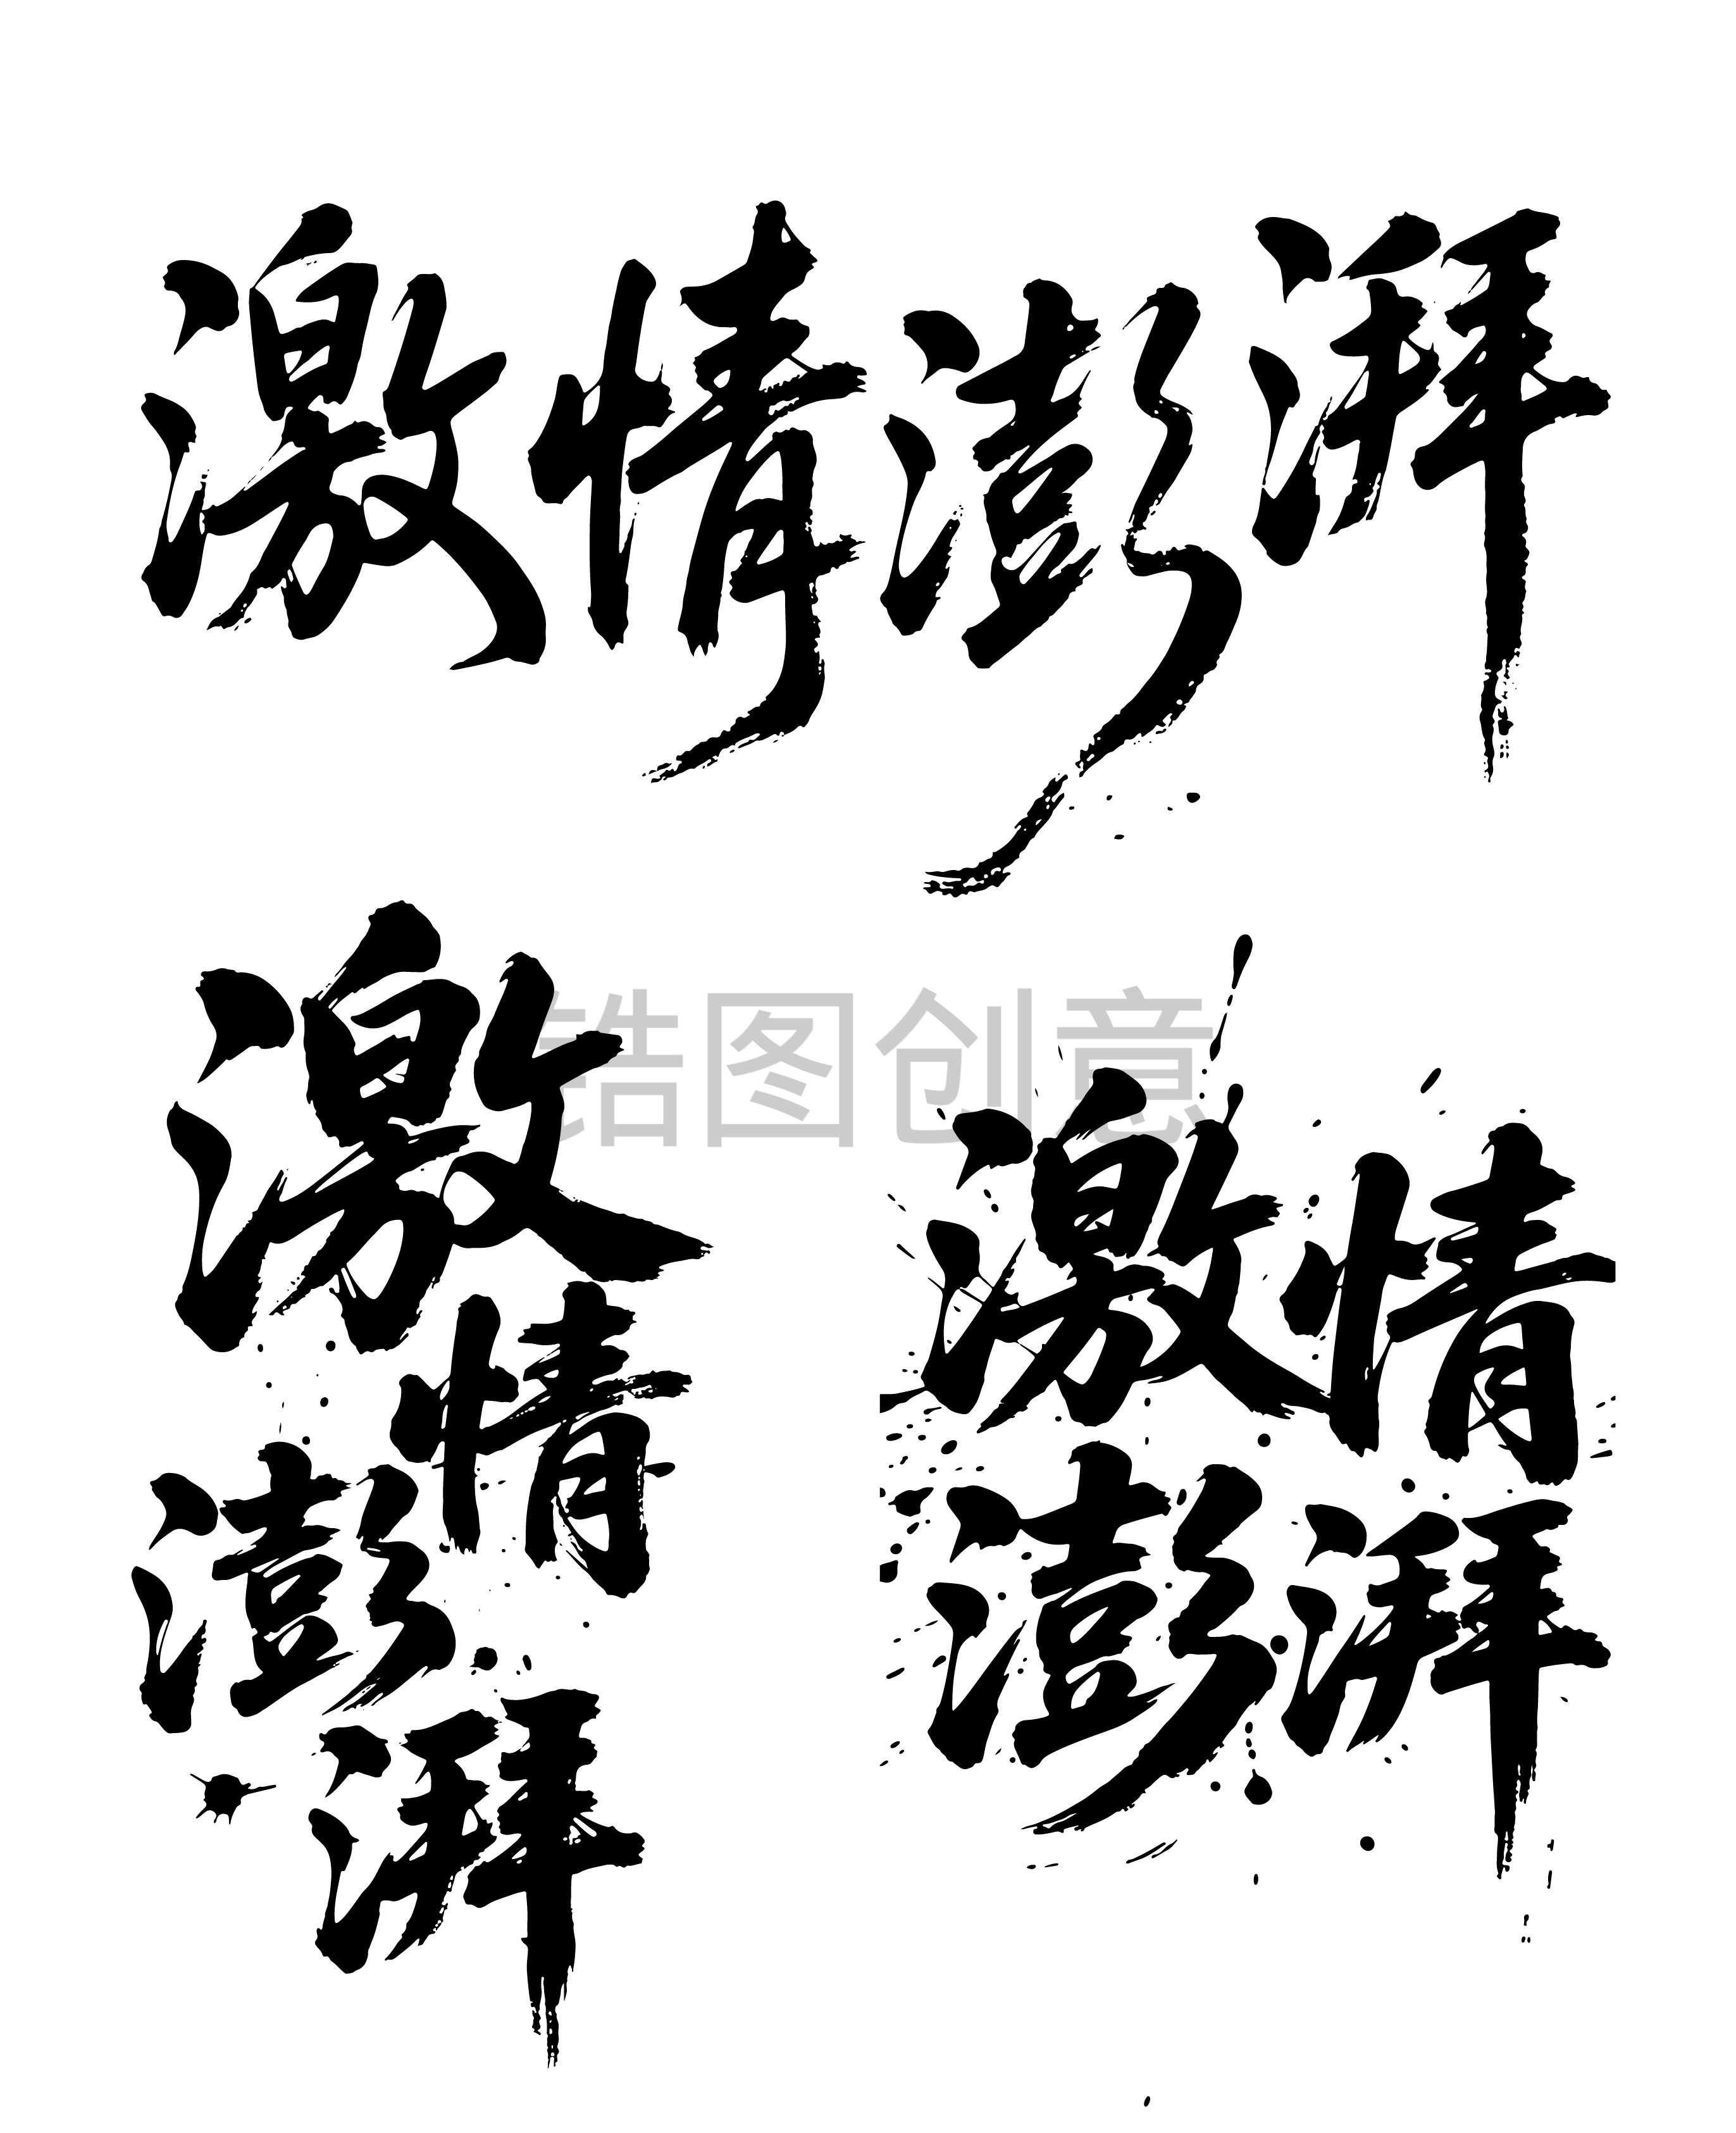 激情澎湃
激
情
澎
湃
酷图创意
激情
澎湃